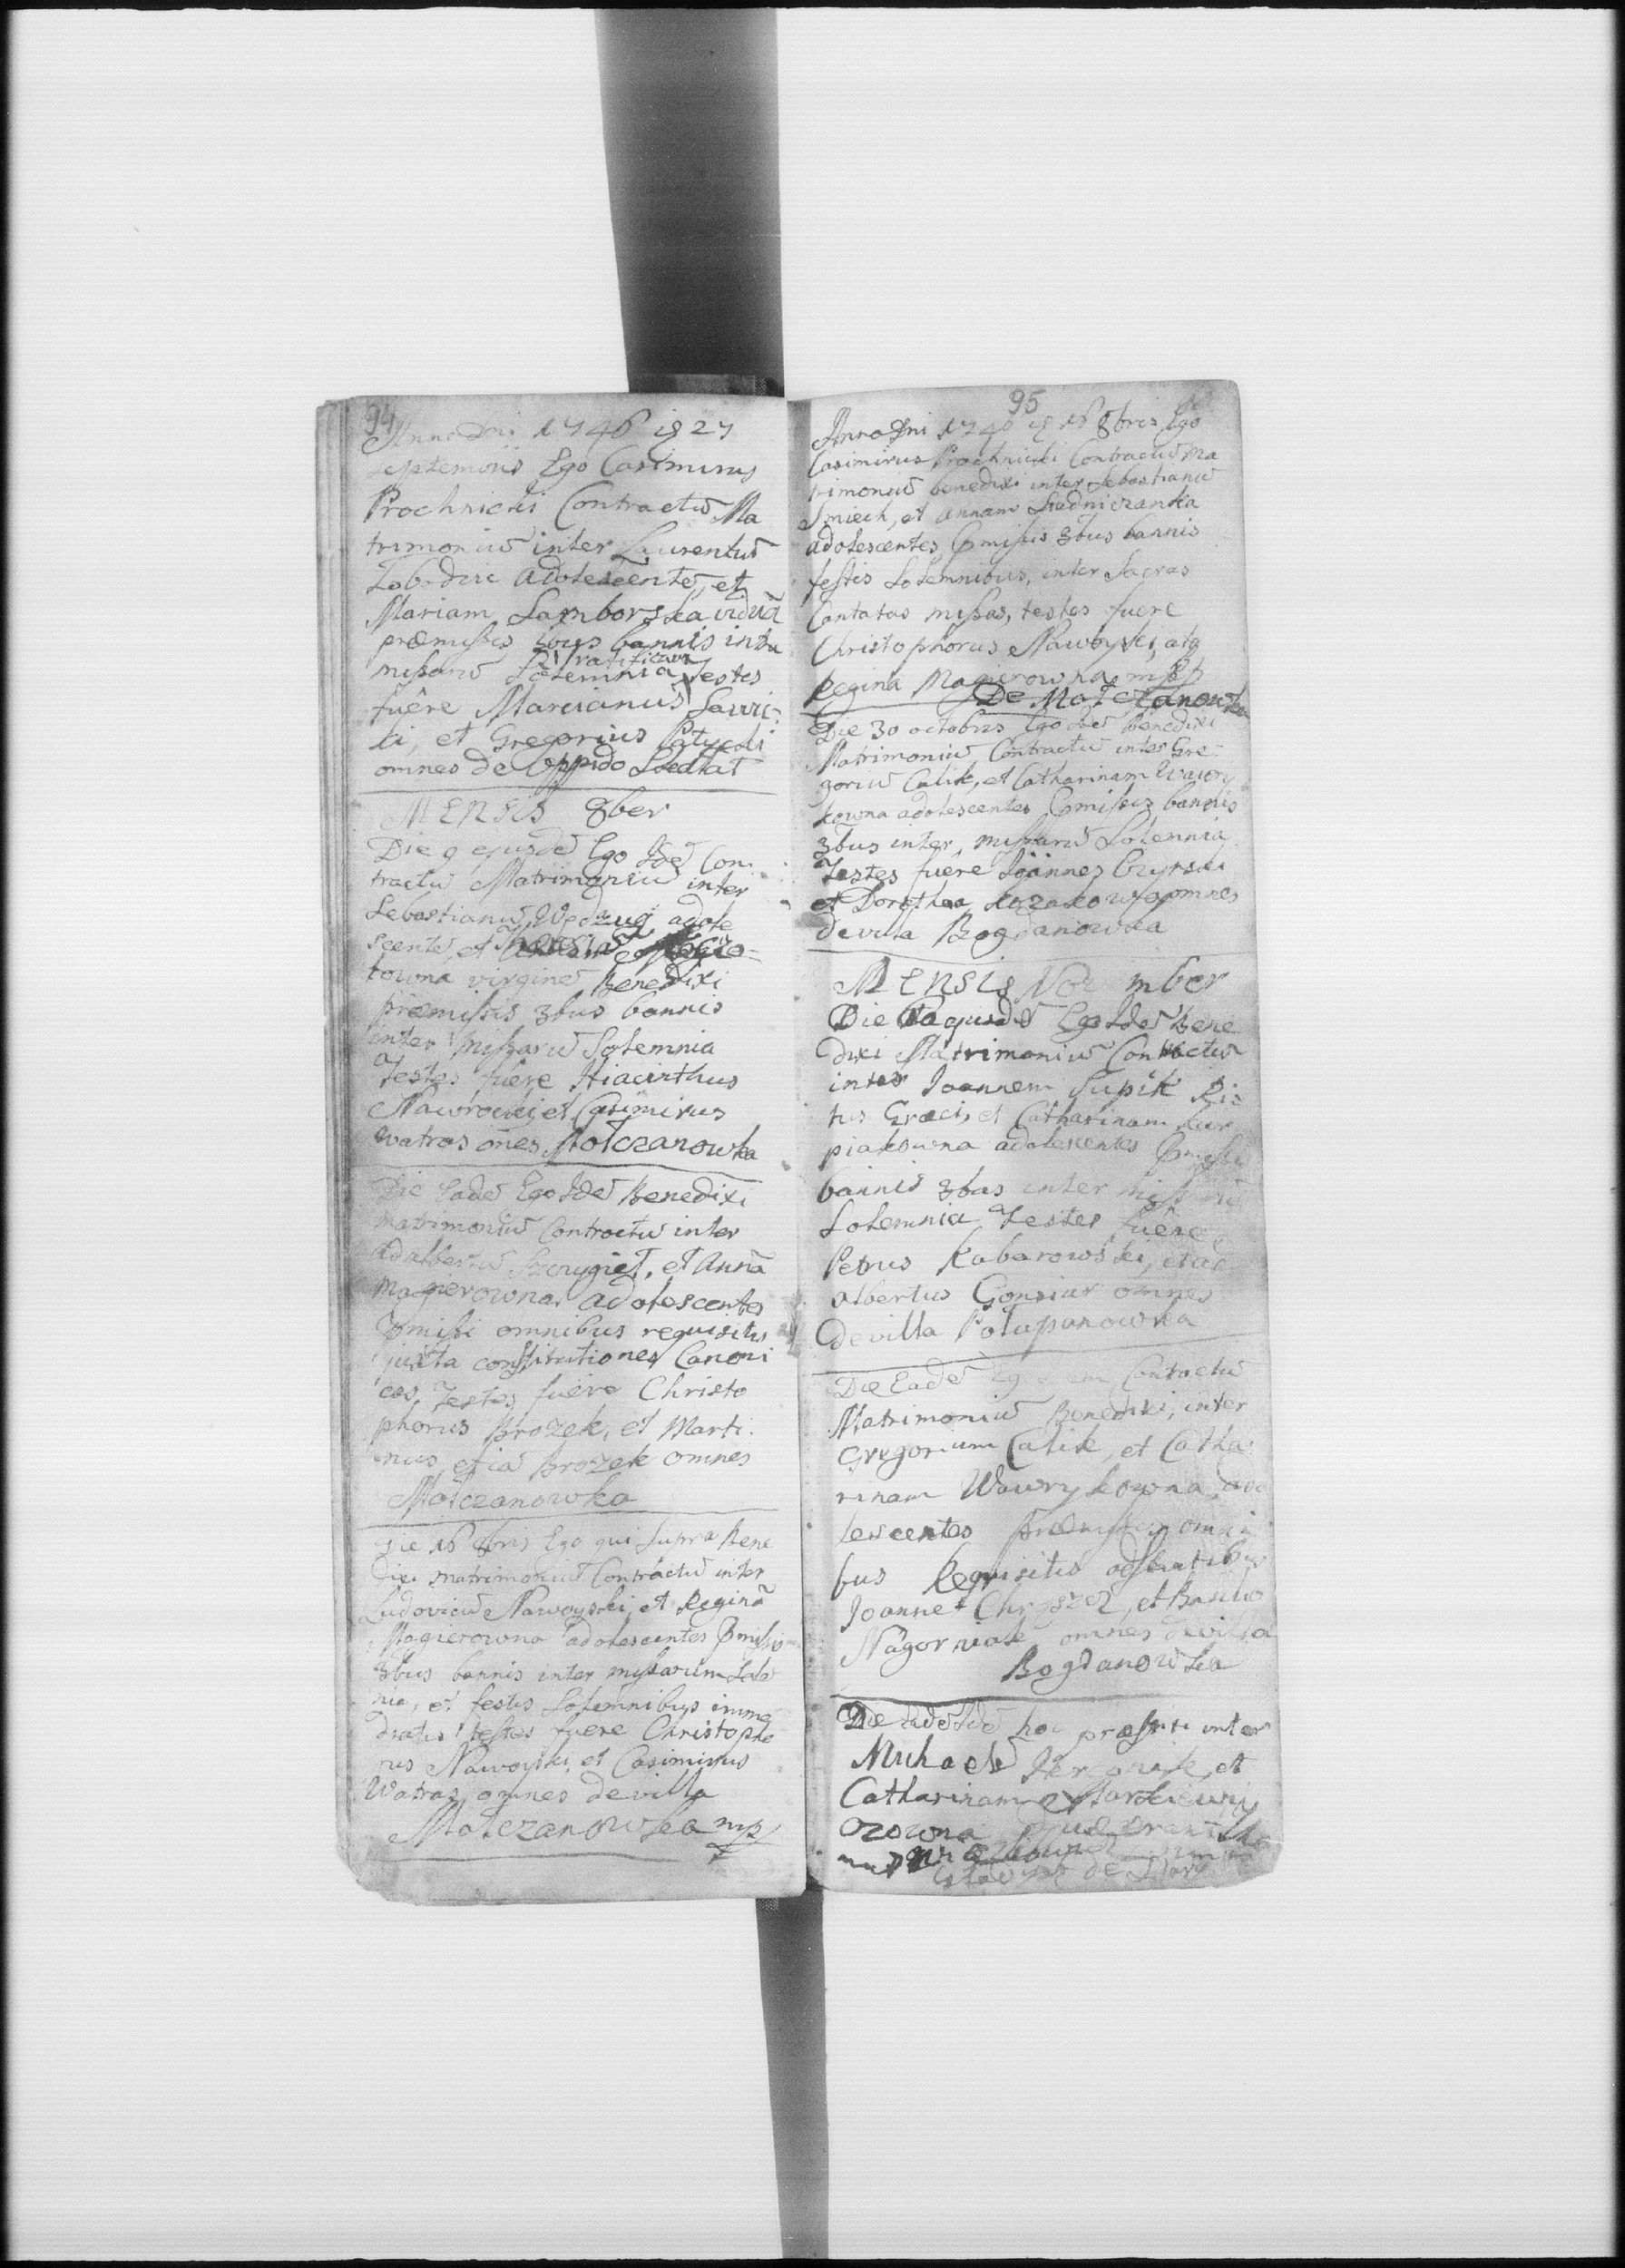 94
Anno Dni 1746 is 27
Septembris Ego Casimirus
Prochnicki Contractũ Ma
trimoniũ inter Laurentiũ
Łobodzic adolescentẽ, et
Mariam Samborska viduã
præmissis bannis intra
missarũ Solemnia ratificavi Testes
fuêre Marcianus Sawic
ki, et Gregorius Patycki
omnes de Oppido
MENSIS 8ber
Die 9 ejusdẽ Ego Idẽ Con
tractũ Matrimoniũ inter
Sebastianũ adole
scentẽ, et
towna virginẽ Benedixi
præmissis 3bus bannis
inter missarũ Solemnia
Testes fuêre Hiacinthus
Nawrocki, et Casimirus
Watras oẽs Mołczanowka
Die Eadẽ Ego Idẽ Benedixi
matrimoniũ Contractũ inter
Adalbertũ Szczygieł, et Annã
Magierowna adolescentes
pmissi omnibus requisitis
juxta constitutiones Canoni
cas, Testes fuêre Christo
phorus Brozek, et Marti
nus etiã Brozek omnes
Mołczanowka
Die 16 8bris Ego qui Supra Bene
dixi matrimoniũ Contractũ inter
Ludovicũ Nawoyski, et Reginã
Magierowna adolescentes pmissis
3bus bannis inter missarum Solẽ
nia, et festis Solemnibus imme
diatis testes fuere Christopho
rus Nawoyski et Casimirus
Watras omnes de villa
Mołczanowka mp
95
Anno Dni 1746 is 16 8bris Ego
Casimirus Prochnicki Contractũ Ma
trimoniũ benedixi inter Sebastianũ
Smiech, et Annam Studniczanka
adolescentes pmissis 3bus bannis
festis Solemnibus, inter Sacras
Cantatas missas, testes fuere
Christophorus Nawoyski, atq
Regina Magierowna mp
De Mołczanowka
Die 30 octobris Ego Idẽ Benedixi
Matrimoniũ Contractũ inter Gre
goriũ Calik, et Catharinam Wawry
kowna adolescentes pmissis bannis
3bus inter missarũ Solennia
Testes fuêre Joannes
et Dorothea omnes
de villa Bogdanowka
MENSIS November
Die ejusdẽ Ego Idẽ Bene
dixi Matrimoniũ Contractũ
inter Joannem Supik Ri
tus Græci, et Catharinam
piakowna adolescentes pmissis
bannis 3bus inter missarũ
Solemnia Testes fuêre
Petrus Kabarowski, et Ad
albertus Gonsiur omnes
de villa Potupanowka
Die Eadẽ Contractũ
Matrimoniũ Benedixi, inter
Gregorium Calik, et Catha
rinam Wawrykowna ado
lescentes præmissis omni
bus Requisitis adstantibus
Joanne et Basilio
Nagorniak omnes de villa
Bogdanowka
Die eadẽ Idẽ hoc præstiti inter
Michaelẽ et
Catharinam